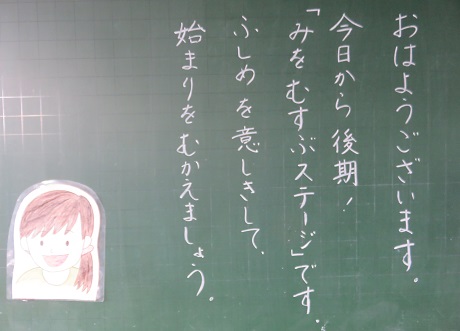 おはようございます。
今日から後期!
「みをむすぶステージ」です。
ふしめを意しきして、
始まりをむかえましょう。